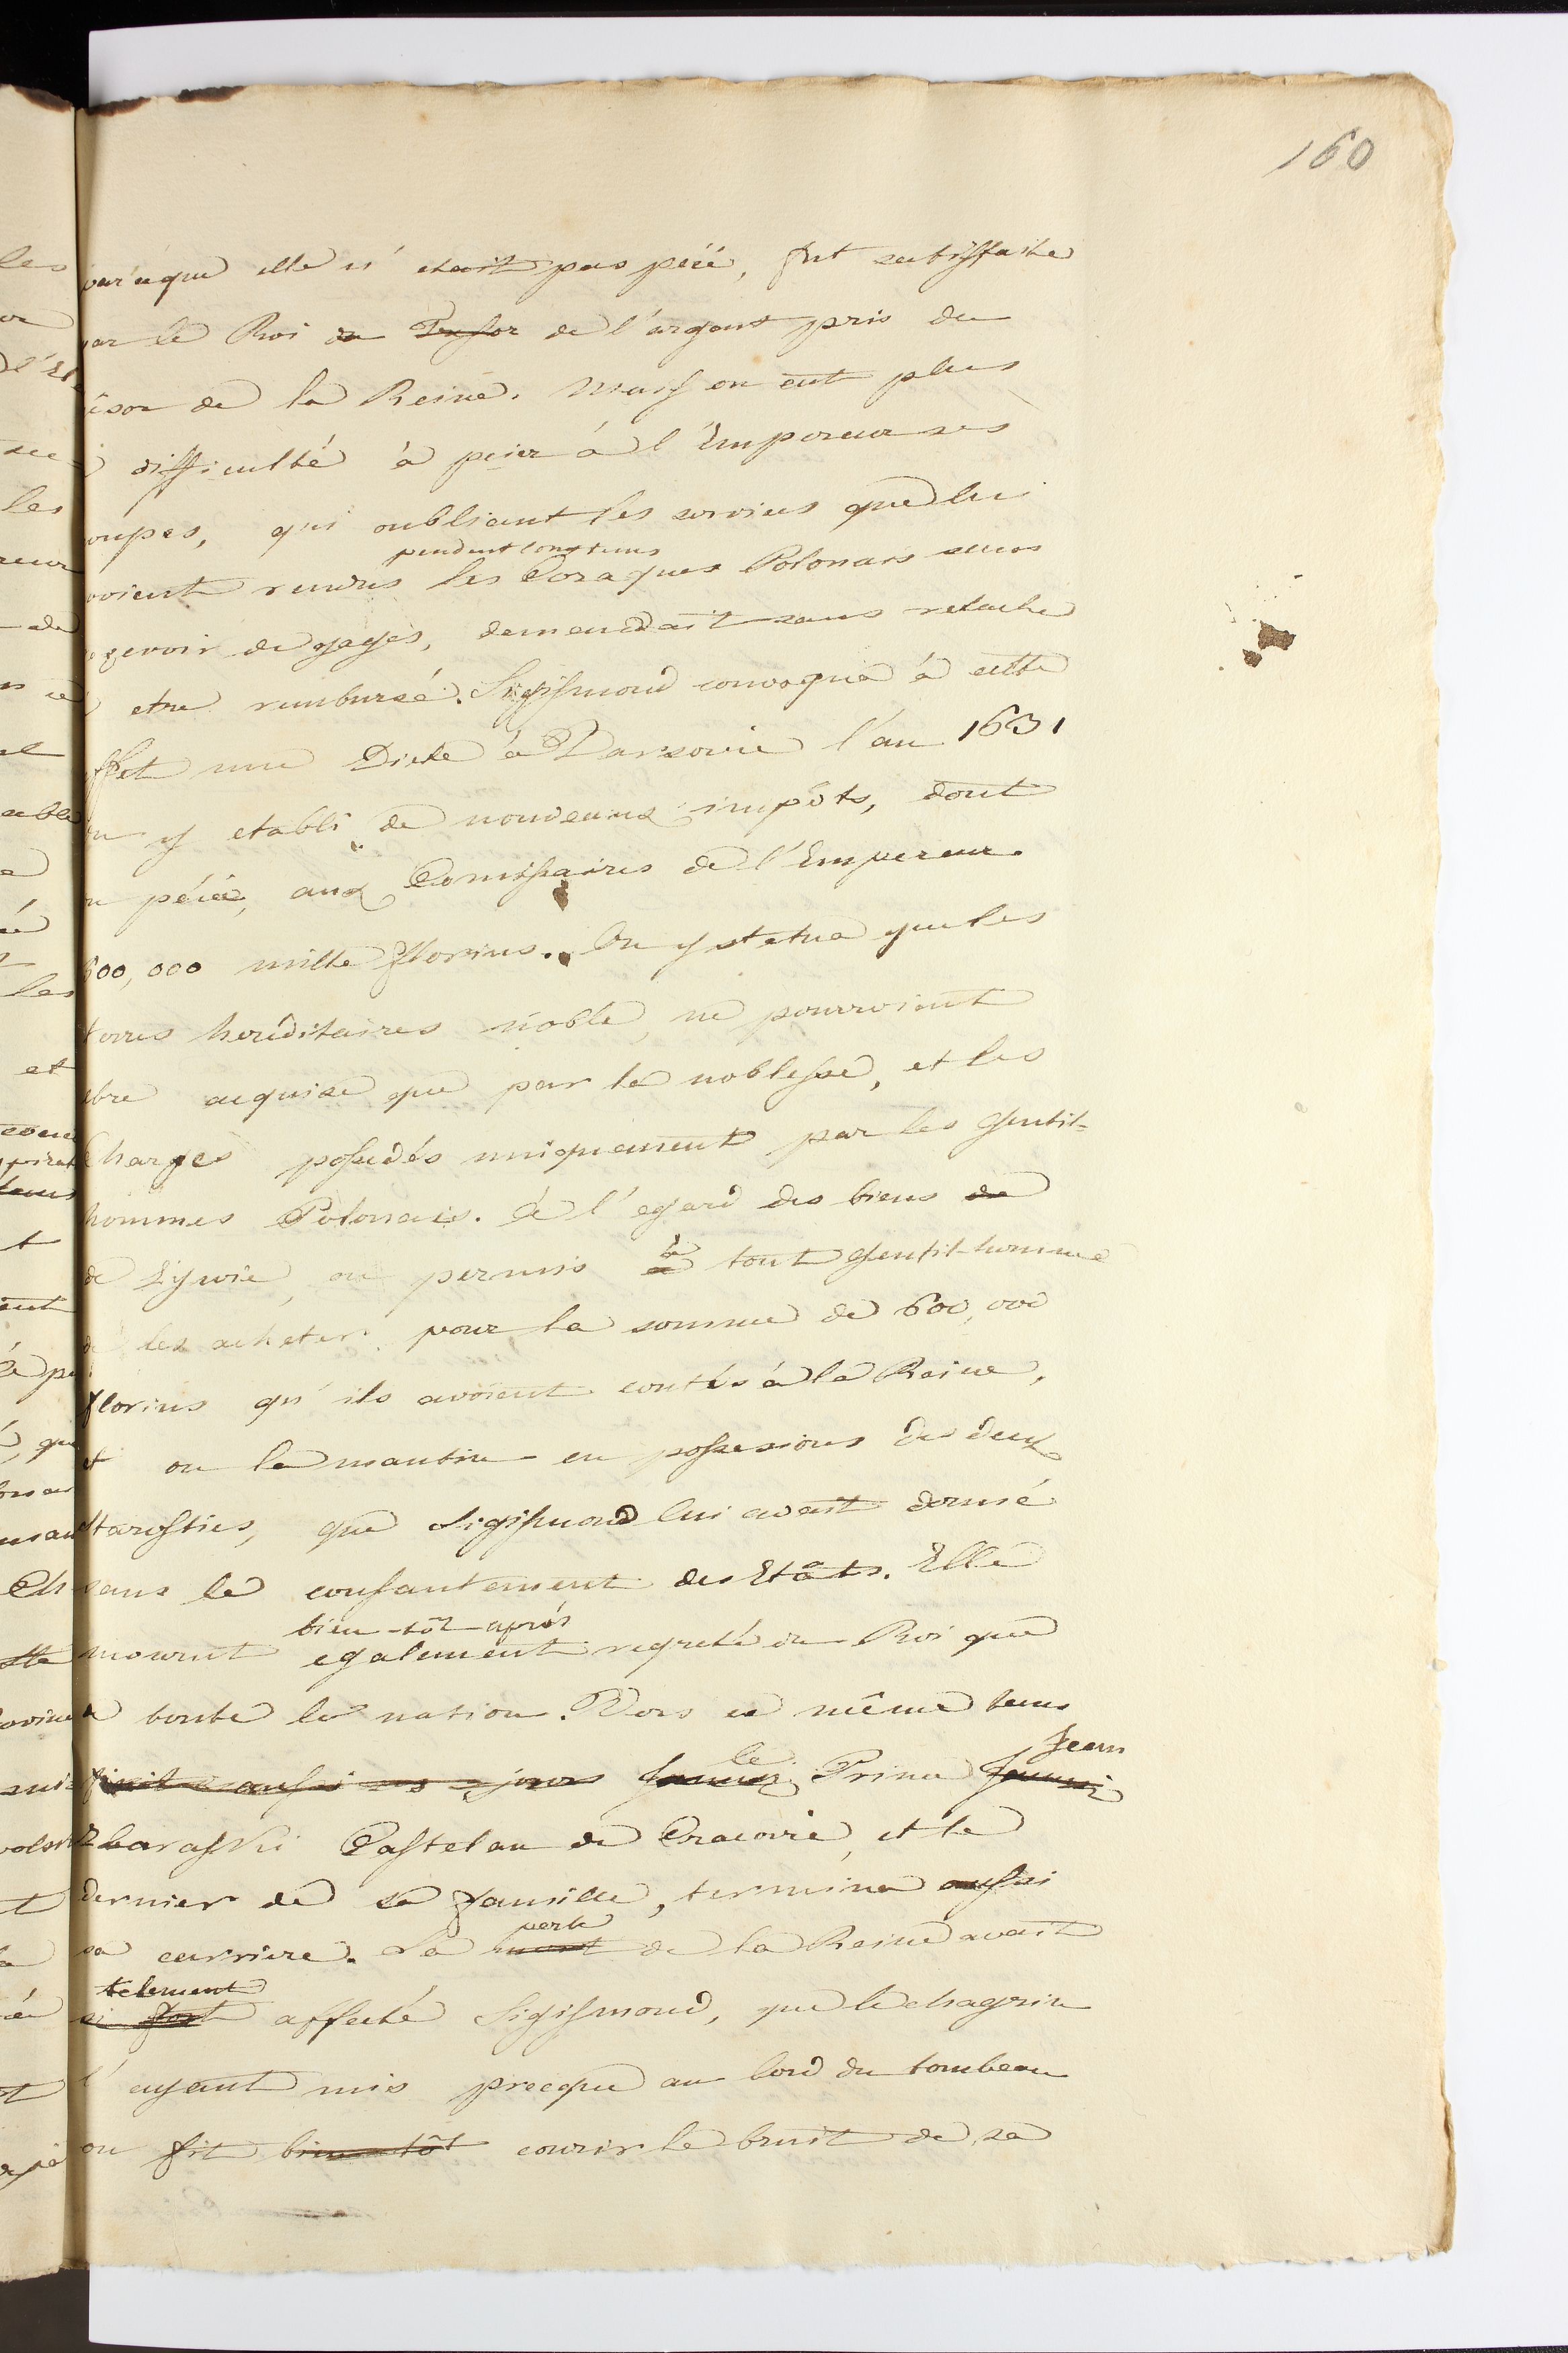 160
parceque elle n'etait pas péiée, fut satisffaite
par le Roi du Tresor de l'argent pris du
trésor de la Reine. Mais on eut plus
difficulté à peier à l'Empereur ses
troupes, qui oubliant les services que lui
pendent longtems
avoient rendus les Cosaques Polonais sans
recevoir de gages, demendait sans relache
d'etre rembursé. Sigismond convoqua à cette
effet une Diete à Varsovie l'an 1631
On y etabli de nouveaux impôts, dont
on péiée, aux Comissaires de l'Empereur
600,000 mille florins. On y statua que les
terres heréditaires noble, ne pourroient
etre acquise que par la noblesse, et les
Charges possedés uniquement par les Gentil-
hommes Polonais. à l'egard des biens de
de Zywie, on permis à tout Gentil-homme
de les acheter pour la somme de 600,000
florins qu'ils avoient coutés à la Reine,
et on la mantin en possesions des deux
Starosties, que Sigismond lui avait donné
sans le consantement des Etats. Elle
bien-tôt après
mourut egalement regreté du Roi que
de toute la nation. Vers ce même tems
le Jean
finit aussi ses jours Prince
Zbaraski Castelan de Cracovie, et le
dernier de sa famille, termina aussi
perte
sa carriere. La mort de la Reine avait
telement
si fort affecté Sigismond, que le chagrin
l'ayant mis precque au bord du tombeau
on fit bien-tôt courir le bruit de sa